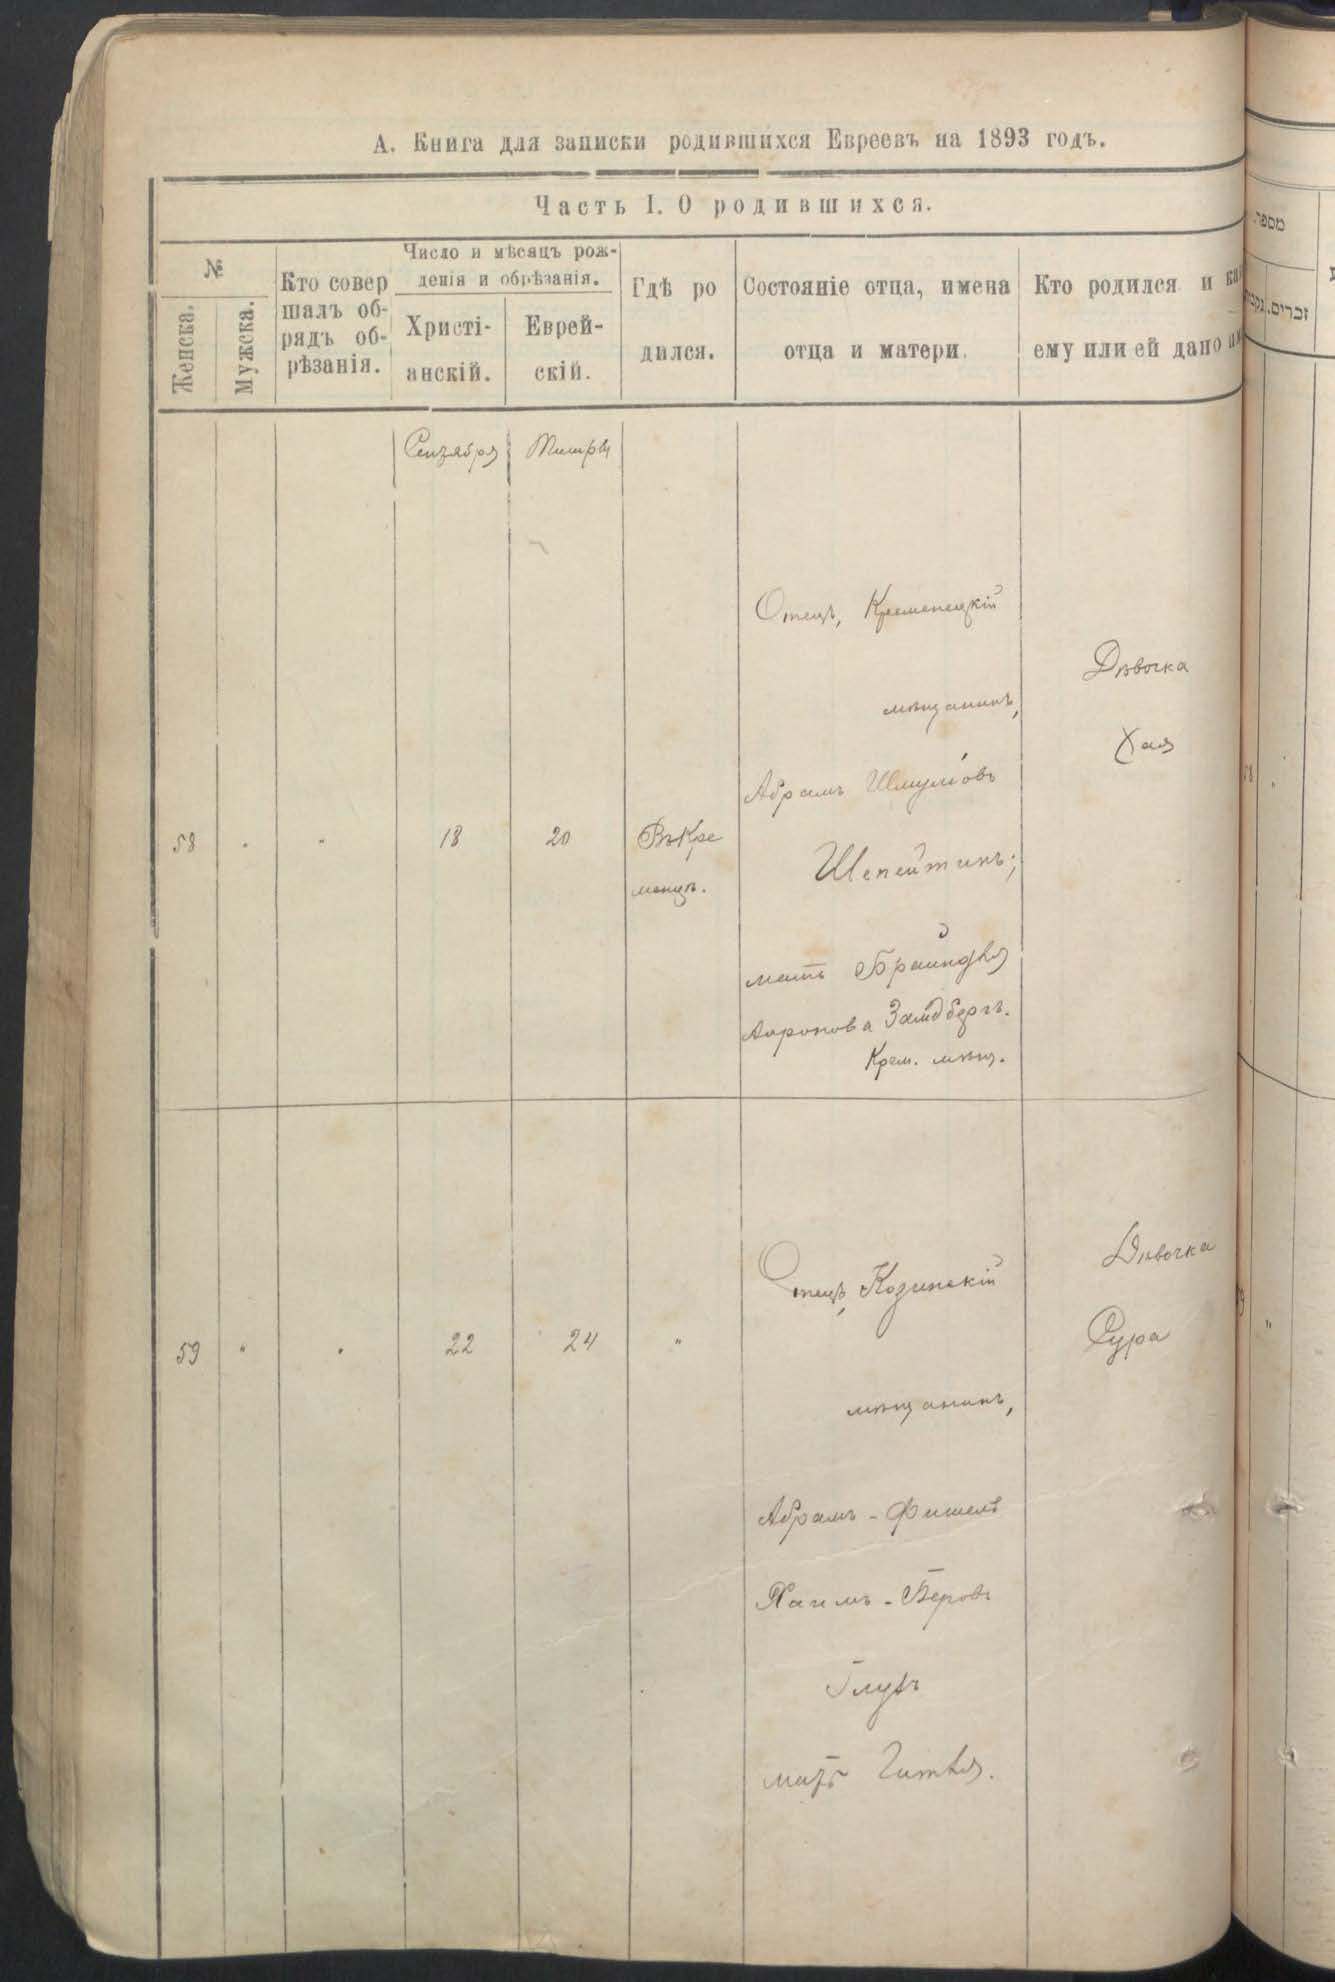 А. Книга для записки родившихся Евреевъ на 1893 годъ.
Часть I. О родившихся.
№
Женска.
Мужска.
Кто совер
шалъ об-
рядъ об-
рѣзанія.
Число и мѣсяцъ рож-
денія и обрѣзанія.
Христі-
анскій.
Еврей-
скій.
Гдѣ ро
дился.
Состояніе отца, имена
отца и матери.
Кто родился и
ему или ей дано
Сентября
Тишри
58
18
20
Въ Кре
менцѣ.
Отецъ, Кременецкій
мѣщанинъ,
Абрамъ Шмулiовъ
Шепейтинъ;
мать Брайндля
Ааронова Замдбергъ.
Крем. мѣщ.
Дѣвочка
Хая
59
"
22
24
"
Отецъ, Козинскій
мѣщанинъ,
Абрамъ - Фишель
Хаимъ - Беровъ
мать Гитля.
Дѣвочка
Сура
מספר
זכרים.
"